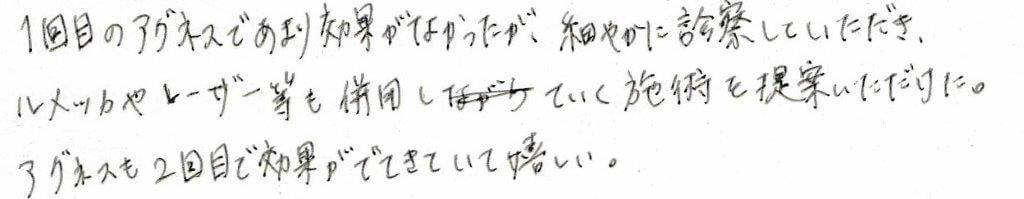 1回目のアグネスであまり効果がなかったが、細やかに診察していただき、
ルメッカやレーザー等も併用していく施術を提案いただけた。
アグネスも2回目で効果がでてきていて嬉しい。